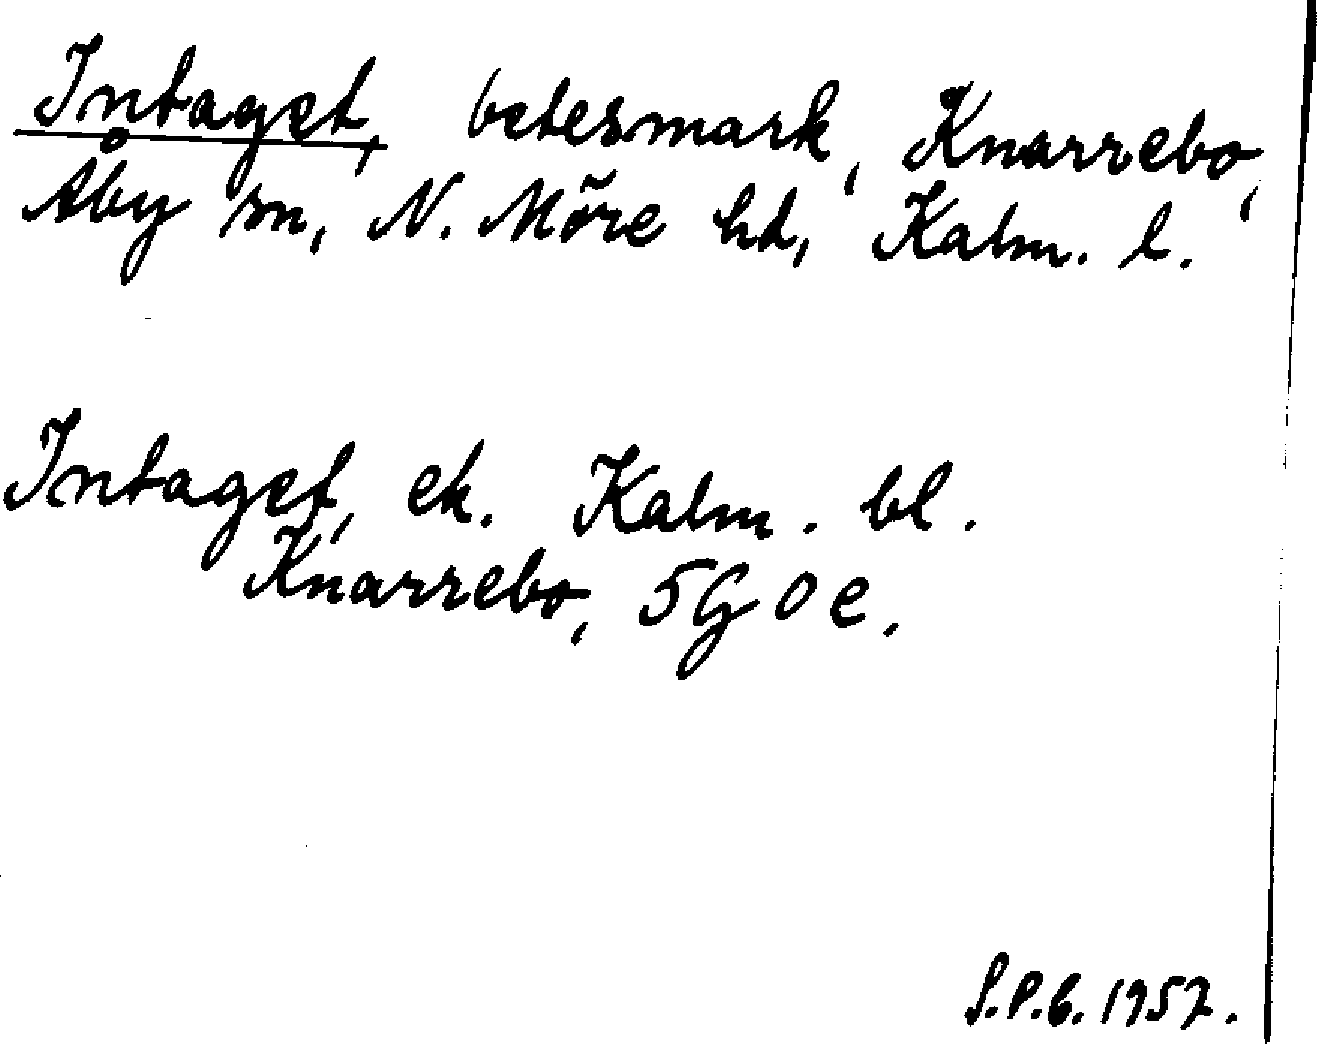 Intaget, betesmark, Knarrebo,
Åby sn, N. Möre hd, Kalm. l.
Intaget, ek. Kalm. bl.
Knarrebo, 5G0e.
S.P.B. 1957.